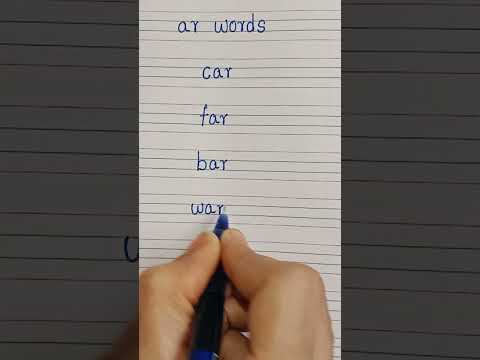 ar words
car
far
bar
war